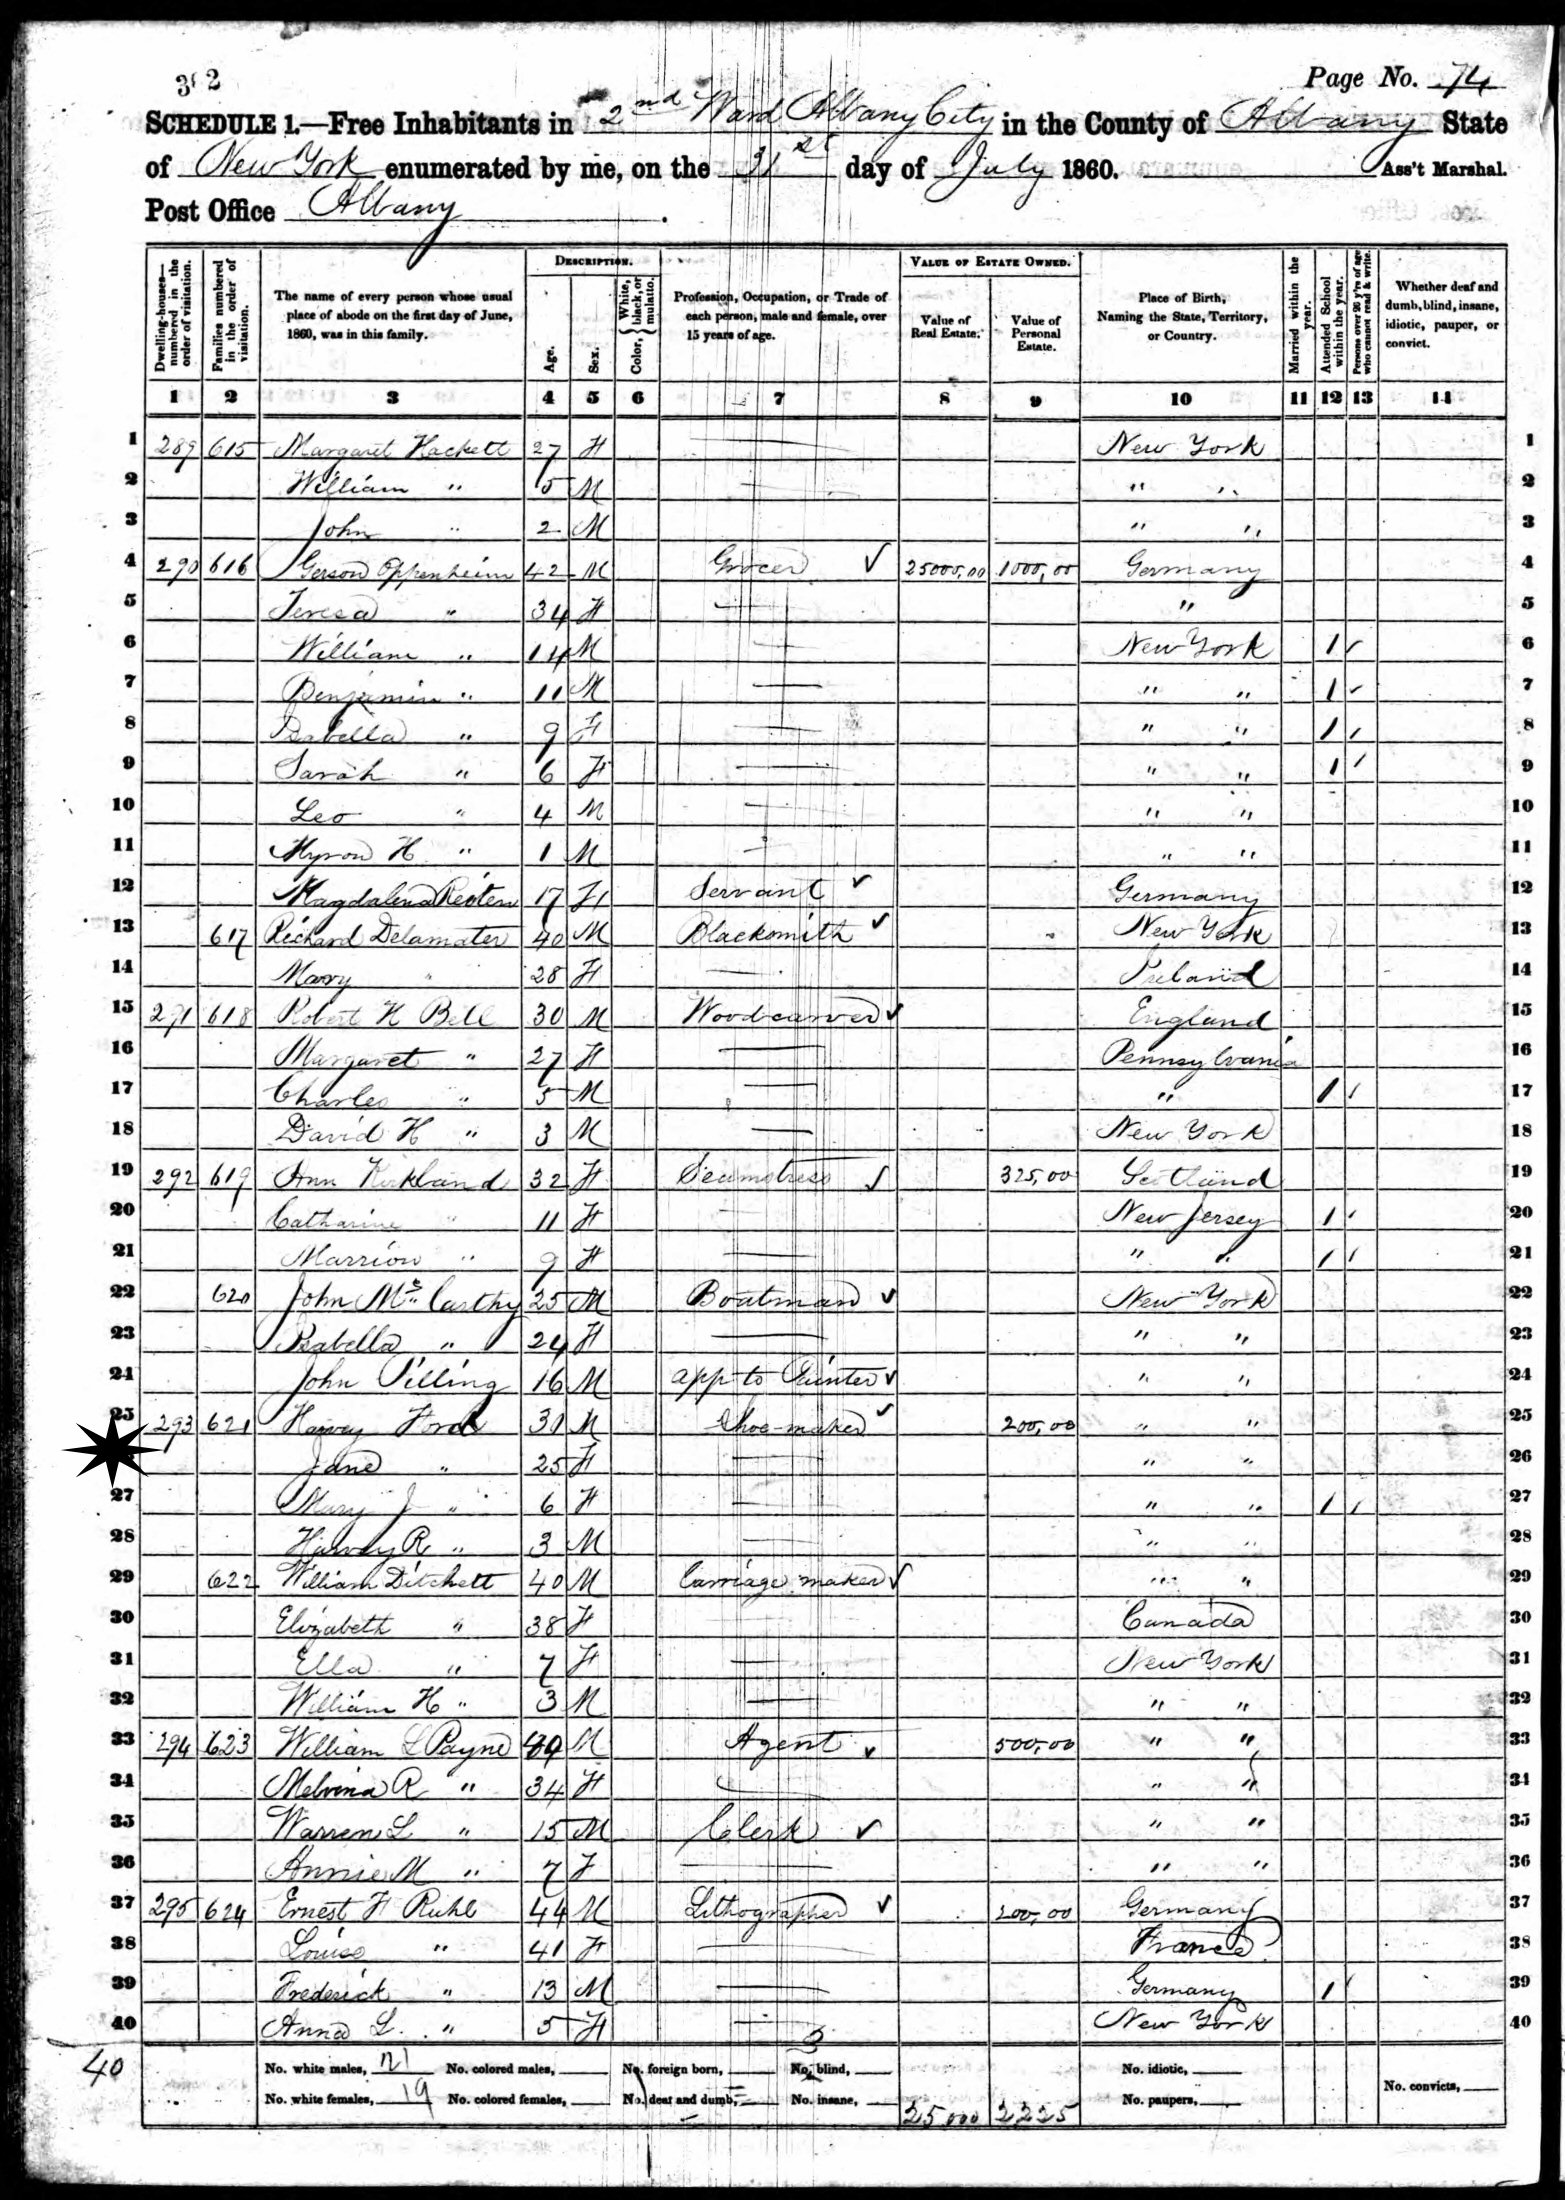 302
Page No. 74
SCHEDULE 1.—Free Inhabitants in 2nd Ward Albany City in the County of Albany State
of New York enumerated by me, on the 31st day of July 1860. Ass't Marshal.
Post Office Albany.
Dwelling-houses—numbered in the order of visitation. Families numbered in the order of visitation. The name of every person whose usual place of abode on the first day of June, 1860, was in this family. DESCRIPTION. Age. Sex. Color, { White, black, or mulatto. Profession, Occupation, or Trade of each person, male and female, over 15 years of age. VALUE OF ESTATE OWNED. Value of Real Estate. Value of Personal Estate. Place of Birth, Naming the State, Territory, or Country. Married within the year. Attended School within the year. Persons over 20 y'rs of age who cannot read & write. Whether deaf and dumb, blind, insane, idiotic, pauper, or convict.
1 2 3 4 5 6 7 8 9 10 11 12 13 14
1 289 615 Margaret Hackett 27 F New York 1
2 William " 5 M " " 2
3 John " 2 M " " 3
4 290 616 Gerson Oppenheim 42 M Grocer ✓ 25000,00 1000,00 Germany 4
5 Teresa " 34 F " 5
6 William " 14 M New York 1 ✓ 6
7 Benjamin " 11 M " " 1 ✓ 7
8 Isabella " 9 F " " 1 / 8
9 Sarah " 6 F " " 1 / 9
10 Leo " 4 M " " 10
11 Myron H " 1 M " " 11
12 Magdalena 17 F Servant ✓ Germany 12
13 617 Richard Delamater 40 M Blacksmith ✓ New York 13
14 Mary " 28 F Ireland 14
15 291 618 Robert H Bell 30 M Woodcarver ✓ England 15
16 Margaret " 27 F Pennsylvania 16
17 Charles " 5 M " 1 / 17
18 David H " 3 M New York 18
19 292 619 Ann Kirkland 32 F Seamstress ✓ 325,00 Scotland 19
20 Catharine " 11 F New Jersey 1 / 20
21 Marrion " 9 F " " 1 / 21
22 620 John McCarthy 25 M Boatman ✓ New York 22
23 Isabella " 24 F " " 23
24 John Pilling 16 M app to Painter ✓ " " 24
25 293 621 Harvey Ford 30 M Shoe-maker ✓ 200,00 " " 25
Jane " 25 F " " 26
27 Mary J " 6 F " " 1 / 27
28 Harvey R " 3 M " " 28
29 622 William Ditchett 40 M Carriage maker ✓ " " 29
30 Elizabeth " 38 F Canada 30
31 Ella " 7 F New York 31
32 William H " 3 M " " 32
33 294 623 William L Payne M Agent ✓ 500,00 " " 33
34 Melvina R " 34 F " " 34
35 Warren L " 15 M Clerk ✓ " " 35
36 Annie M " 7 F " " 36
37 295 624 Ernest F Ruhl 44 M Lithographer ✓ 200,00 Germany 37
38 Louise " 41 F France 38
39 Frederick " 13 M Germany 1 / 39
40 Anna L. " 5 F New York 40
40 No. white males, 21 No. colored males, No. foreign born, No. blind, No. idiotic,
No. white females, 19 No. colored females, No. deaf and dumb, No. insane, 25000 2225 No. paupers, No. convicts,